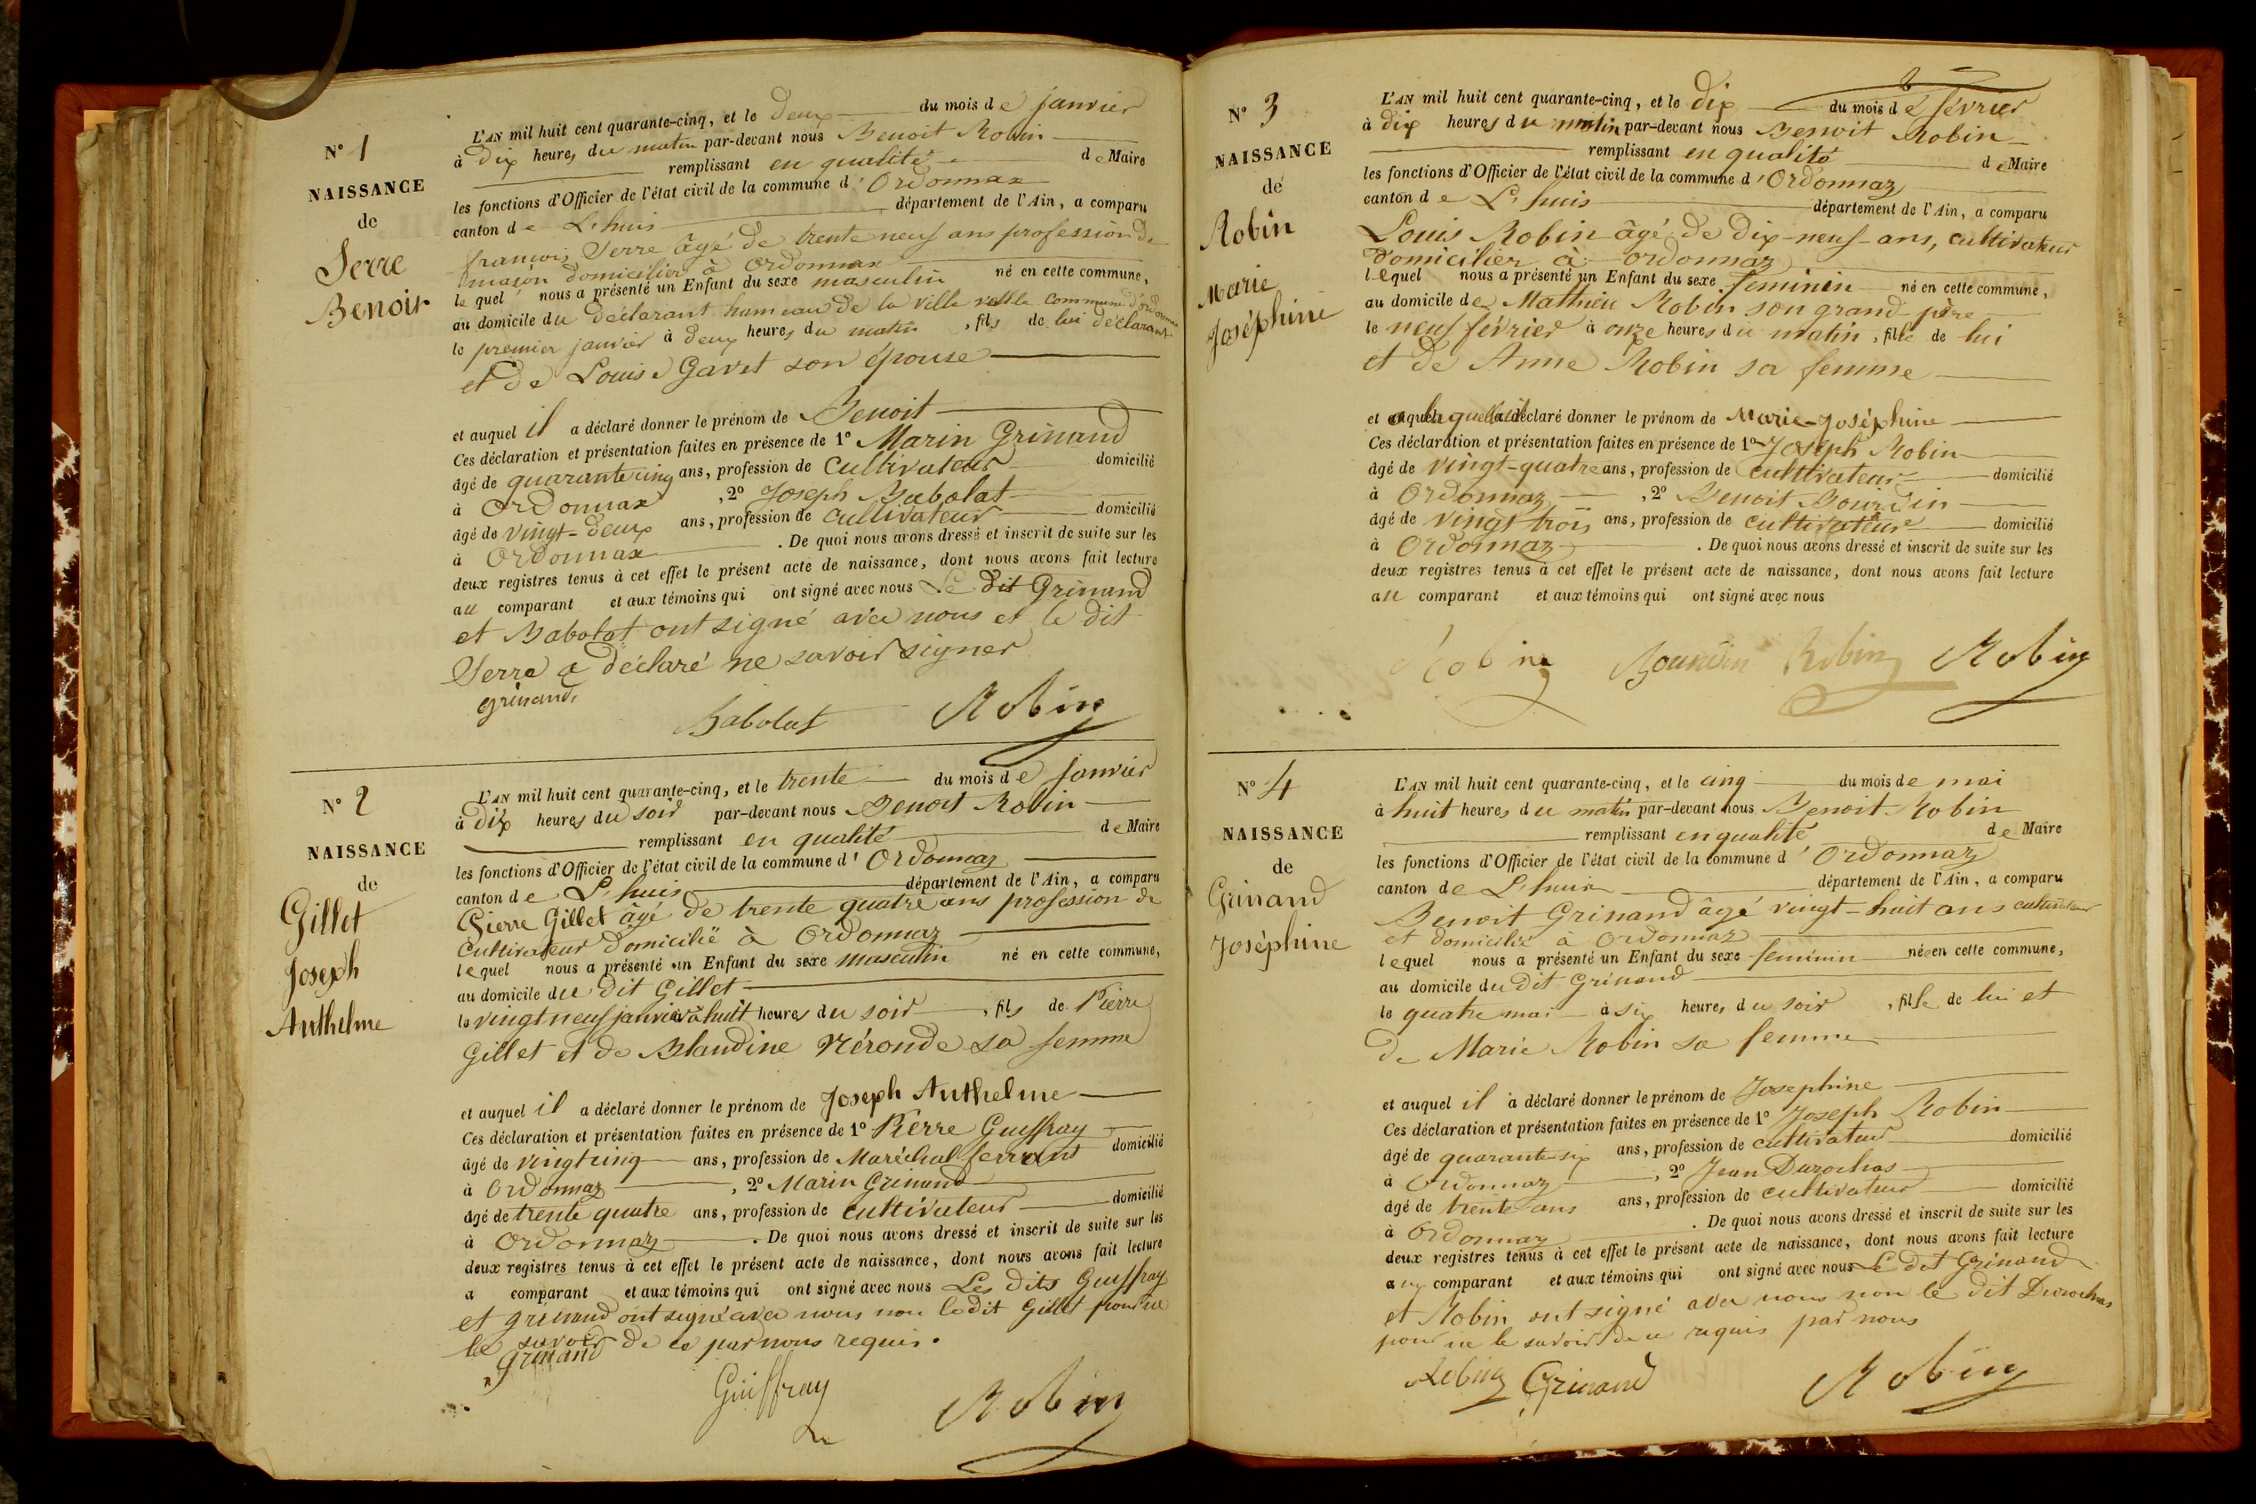 N° 1
NAISSANCE
de
Serre
Benoit
L'AN mil huit cent quarante-cinq, et le deux du mois de janvier
à dix heures du matin par-devant nous Benoit Robin
remplissant en qualité de Maire
les fonctions d'Officier de l'état civil de la commune d'Ordonnaz
canton de L'huis département de l'Ain, a comparu
françois Serre âgé de trente neuf ans profession de
maçon domicilier à Ordonnaz
lequel nous a présenté un Enfant du sexe masculin né en cette commune,
au domicile du déclarant hameau de la ville commune d'ordonnaz
le premier janvier à deux heures du matin, fils de lui déclarant
et de Louise Gavet son épouse
et auquel il a déclaré donner le prénom de Benoit
Ces déclaration et présentation faites en présence de 1° Marin Grinand
âgé de quarante cinq ans, profession de Cultivateur domicilié
à Ordonnaz, 2° Joseph Babolat
âgé de vingt-deux ans, profession de cultivateur domicilié
à Ordonnaz. De quoi nous avons dressé et inscrit de suite sur les
deux registres tenus à cet effet le présent acte de naissance, dont nous avons fait lecture
au comparant et aux témoins qui ont signé avec nous Le dit Grinand
et Babolat ont signé avec nous et le dit
Serre a déclaré ne savoir signer
Grinand
Babolat Robin
N° 2
NAISSANCE
de
Gillet
Joseph
Anthelme
L'AN mil huit cent quarante-cinq, et le trente du mois de janvier
à dix heures du soir par-devant nous Benoit Robin
remplissant en qualité de Maire
les fonctions d'Officier de l'état civil de la commune d'Ordonnaz
canton de L'huis département de l'Ain, a comparu
Pierre Gillet âgé de trente quatre ans profession de
Cultivateur domicilié à Ordonnaz
lequel nous a présenté un Enfant du sexe masculin né en cette commune,
au domicile du dit Gillet
le vingt neuf janvier à huit heures du soir, fils de Pierre
Gillet et de Blandine Néronde sa femme
et auquel il a déclaré donner le prénom de Joseph Anthelme
Ces déclaration et présentation faites en présence de 1° Pierre Guiffray
âgé de vingt cinq ans, profession de Maréchal ferrant domicilié
à Ordonnaz, 2° Marin Grinand
âgé de trente quatre ans, profession de cultivateur domicilié
à Ordonnaz. De quoi nous avons dressé et inscrit de suite sur les
deux registres tenus à cet effet le présent acte de naissance, dont nous avons fait lecture
a comparant et aux témoins qui ont signé avec nous Les dits Guiffray
et grinand ont signé avec nous non le dit Gillet pour ne
le savoir de ce par nous requis.
Grinand
Guiffray Robin
N° 3
NAISSANCE
de
Robin
Marie
Joséphine
L'AN mil huit cent quarante-cinq, et le dix du mois de février
à dix heures du matin par-devant nous Benoit Robin
remplissant en qualité de Maire
les fonctions d'Officier de l'état civil de la commune d'Ordonnaz
canton de L'huis département de l'Ain, a comparu
Louis Robin âgé de dix-neuf-ans, cultivateur
domicilier à ordonnaz
lequel nous a présenté un Enfant du sexe feminin né en cette commune,
au domicile de Mathieu Robin son grand père
le neuf février à onze heures du matin, fille de lui
et de Anne Robin sa femme
et a laquelle il a déclaré donner le prénom de Marie-Joséphine
Ces déclaration et présentation faites en présence de 1° Joseph Robin
âgé de vingt-quatre ans, profession de cultivateur domicilié
à Ordonnaz, 2° Benoit Bourdin
âgé de vingt trois ans, profession de cultivateur domicilié
à Ordonnaz. De quoi nous avons dressé et inscrit de suite sur les
deux registres tenus à cet effet le présent acte de naissance, dont nous avons fait lecture
au comparant et aux témoins qui ont signé avec nous
Robin Bourdin Robin Robin
N° 4
NAISSANCE
de
Grinand
Joséphine
L'AN mil huit cent quarante-cinq, et le cinq du mois de mai
à huit heures du matin par-devant nous Benoit Robin
remplissant en qualité de Maire
les fonctions d'Officier de l'état civil de la commune d'Ordonnaz
canton de L'huis département de l'Ain, a comparu
Benoit Grinand âgé vingt-huit ans cultivateur
et domicilié à Ordonnaz
lequel nous a présenté un Enfant du sexe feminin née en cette commune,
au domicile du dit Grinand
le quatre mai à six heures du soir, fille de lui et
de Marie Robin sa femme
et auquel il a déclaré donner le prénom de Josephine
Ces déclaration et présentation faites en présence de 1° Joseph Robin
âgé de quarante six ans, profession de cultivateur domicilié
à Ordonnaz, 2° Jean Durochas
âgé de trente ans ans, profession de cultivateur domicilié
à Ordonnaz. De quoi nous avons dressé et inscrit de suite sur les
deux registres tenus à cet effet le présent acte de naissance, dont nous avons fait lecture
au comparant et aux témoins qui ont signé avec nous Le dit Grinand
et Robin ont signé avec nous non le dit Durochas
pour ne le savoir de ce requis par nous
Robin Grinand Robin